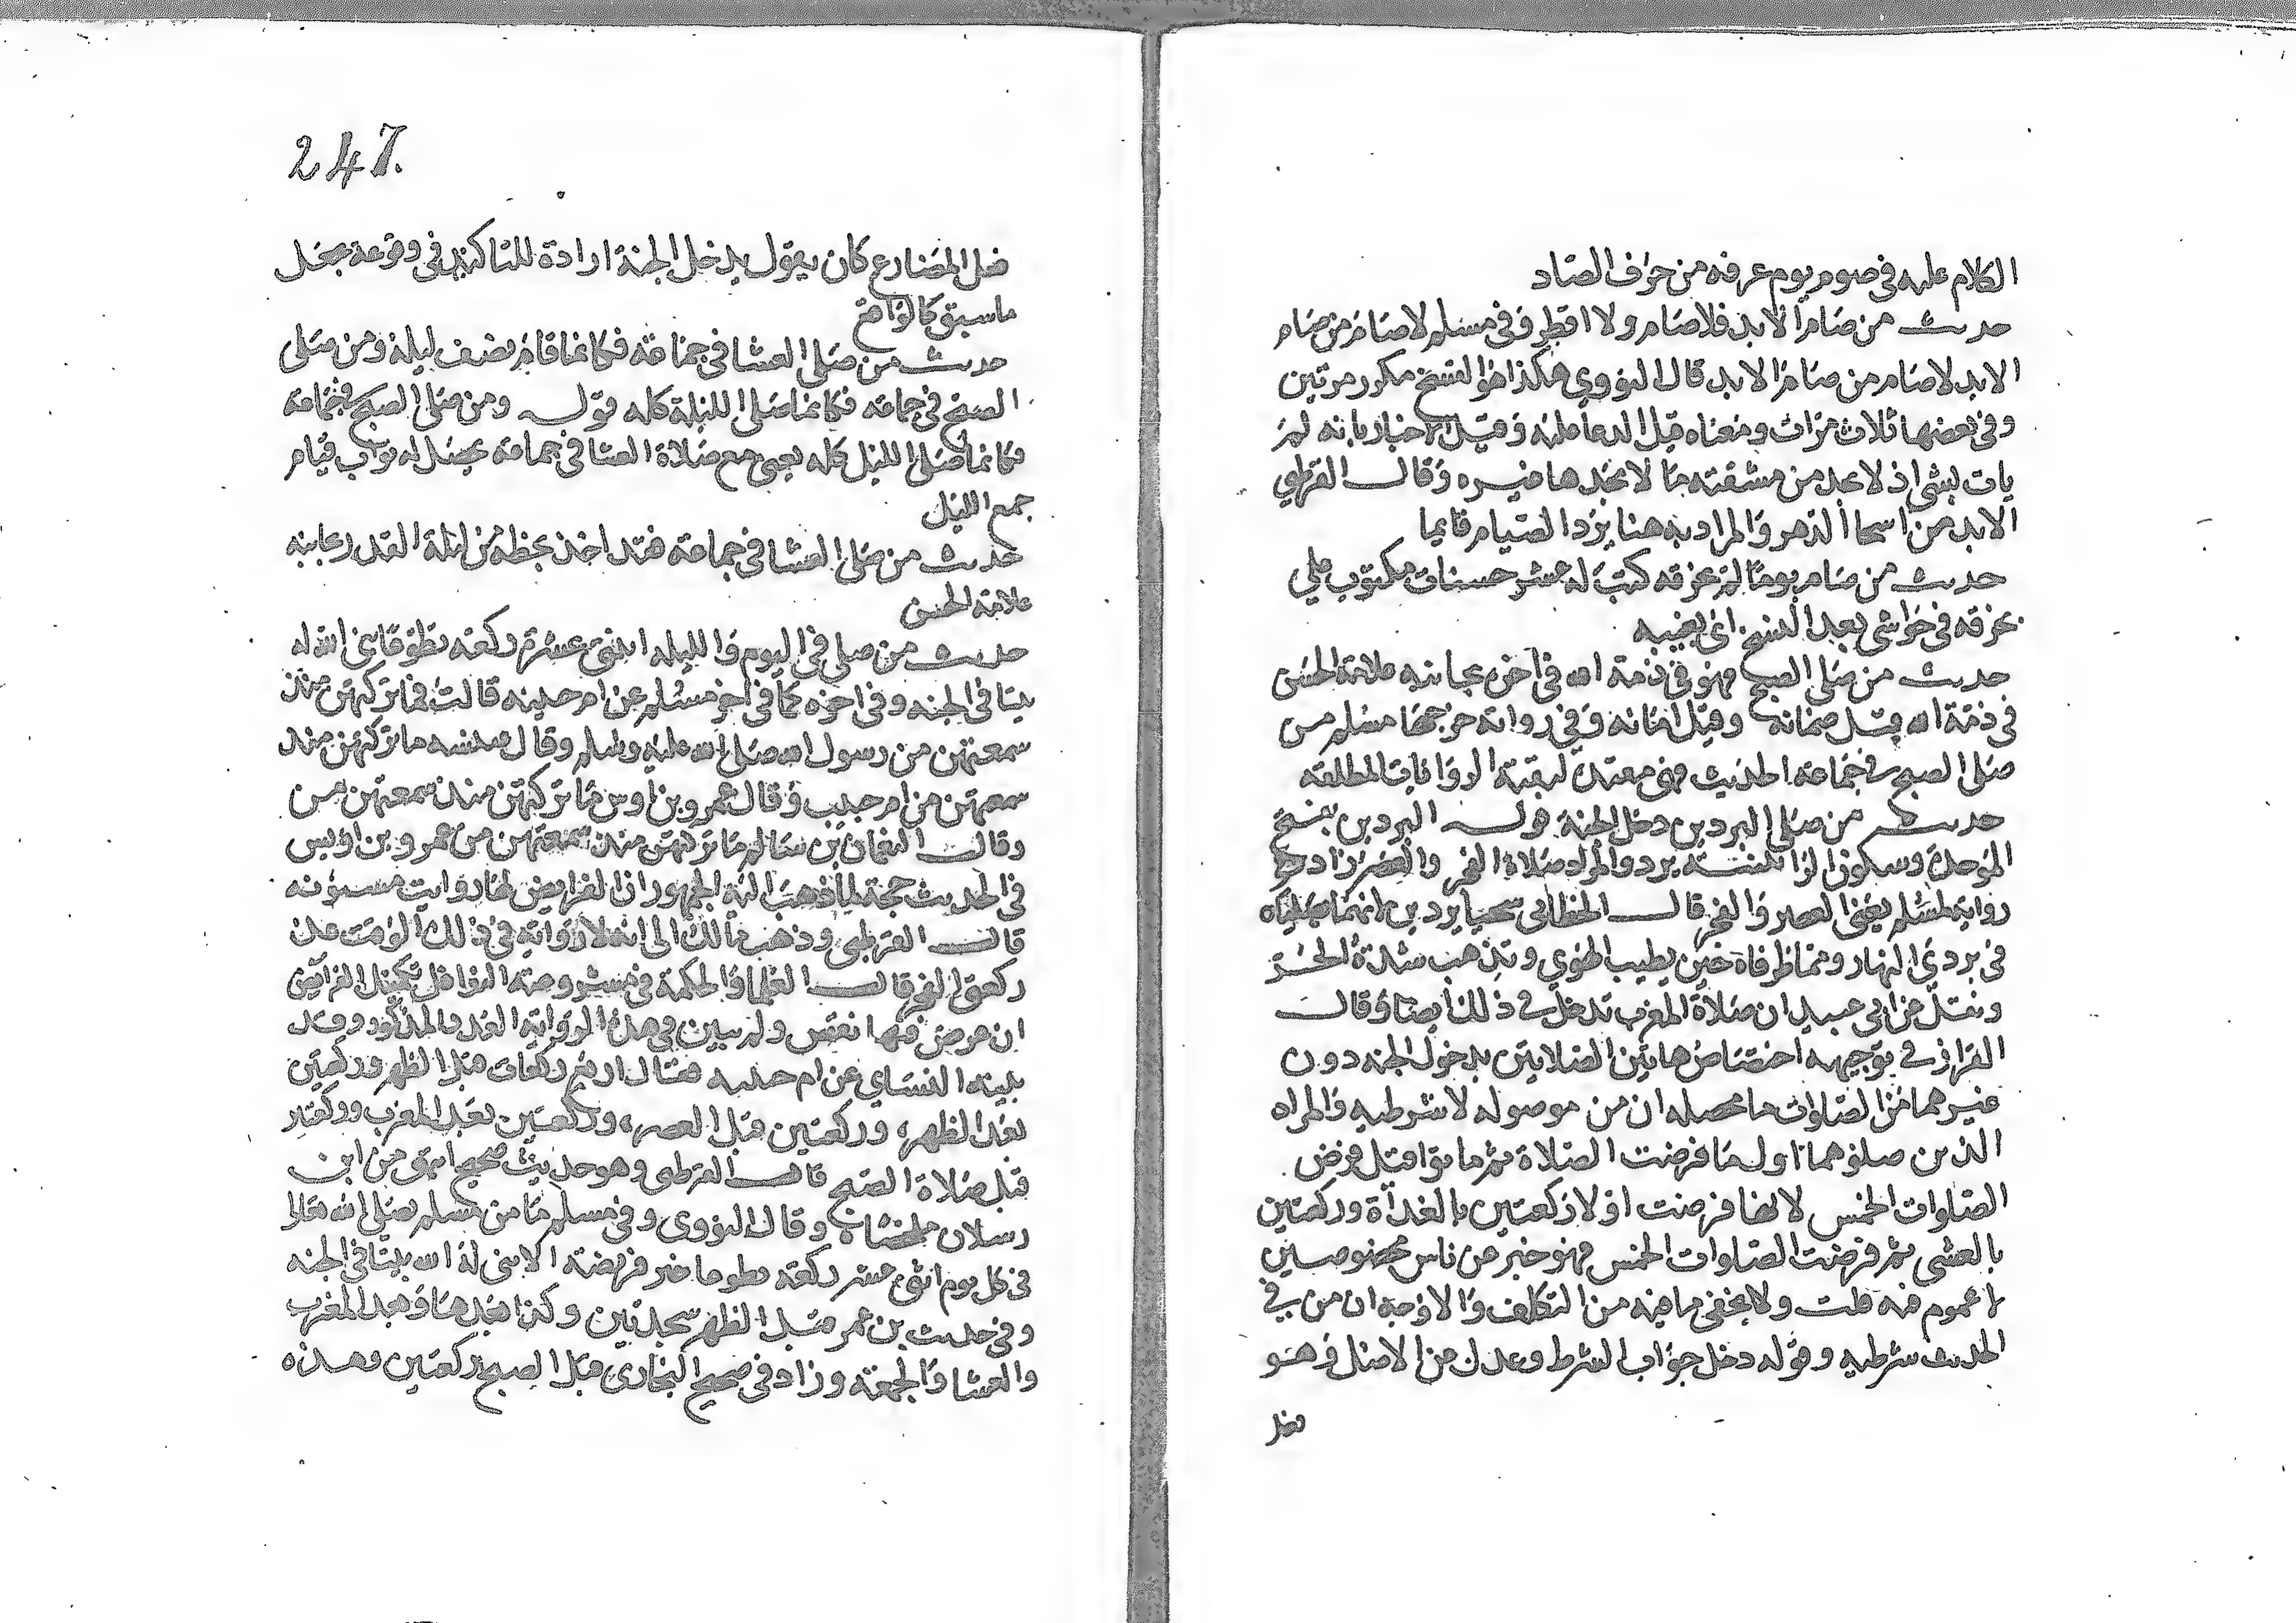 الكلام عليه في صوم يوم عرفه من حرف الصاد
حديث من صام الابد فلا صام ولا افطر وفي مسلم لا صام من صام
الابد لا صام من صام الابد قال النووي هكذا هو النسخ مكرر مرتين
وفي بعضها ثلاث مرات ومعناه قيل الدعا عليه وقيل الاخبار بانه لم
يات بشي اذ لا يجد من مشقته ما لا يجدها غيره وقال القرطبي
الابد من اسما الدهر والمراد به هنا يرد الصيام قايما
حديث من صام يوما لم يخرقه كتب له عشر حسنات مكتوب على
يخرقه في حواشي بعض النسخ اي يغيبه
حديث من صلى الصبح فهو في ذمة الله في اخره بجانبه علامة الحسن
في ذمة الله قيل ضمانه وقيل امانه وفي رواية خرجها مسلم من
صلى الصبح في جماعة الحديث فهي مقيدة لبقية الروايات المطلقه
حديث من صلى البردين دخل الجنة قوله البردين بفتح
الموحدة وسكون الرا تثنية برد والمراد صلاة الفجر والعصر زاد في
رواية لمسلم يعني العصر والفجر قال الخطابي سميا بردين لانهما يصليان
في بردي النهار وهما طرفاه حين يطيب الهوي وتذهب شدة الحر
ونقل عن ابي عبيد ان صلاة المغرب تدخل في ذلك ايضا وقال
القزاز في توجيهه اختصاص هاتين الصلاتين بدخول الجنه دون
غيرهما من الصلوات ما محصله ان من موصوله لا شرطيه والمراد
الذين صلوهما اول ما فرضت الصلاة ثم ماتوا قبل فرض
الصلوات الخمس لانها فرضت اولا ركعتين بالغداة وركعتين
بالعشي ثم فرضت الصلوات الخمس فهو خبر عن ناس مخصوصين
لا عموم فيه قلت ولا يخفى ما فيه من التكلف والاوجه ان من في
الحديث شرطيه وقوله دخل جواب الشرط وعدل من الاصل وهو
فعل
247
فعل المضارع كان يقول يدخل الجنة ارادة للتاكيد في وقوعه بجعل
ما سيقع كالواقع
حديث من صلى العشا في جماعة فكانما قام نصف ليلة ومن صلى
الصبح في جماعه فكانما صلى الليلة كله قوله ومن صلى الصبح في جماعة
فكانما صلى الليل كله يعني مع صلاة العشا في جماعة يحصل له ثواب قيام
جميع الليل
حديث من صلى العشا في جماعة فقد اخذ بحظه من ليلة القدر بجانبه
علامة الحسن
حديث من صلى في اليوم والليله اثنتي عشرة ركعه تطوعا بنى الله له
بيتا في الجنه وفي اخره كما في اخر مسلم عن ام حبيبه قالت فما تركتهن منذ
سمعتهن من رسول الله صلى الله عليه وسلم وقال عنبسه ما تركتهن منذ
سمعتهن من ام حبيب وقال عمرو بن اوس ما تركتهن منذ سمعتهن من
وقال النعمان بن سالم ما تركتهن منذ سمعتهن من عمرو بن اويس
في الحديث حجة لما ذهب اليه الجمهور ان الفرايض لها رواتب مسنونه
قال القرطبي وذهب مالك الى انه لا رواتب في ذلك الوقت عدا
ركعتي الفجر قال العلما والحكمة في مشروعيه النوافل تكميل الفرايض
ان عرض فيها نقص ولم يبين في هذه الرواية العدد المذكور وقد
بينه النساي عن ام حبيبه فقال اربع ركعات قبل الظهر وركعتين
بعد الظهر، وركعتين قبل العصر، وركعتين بعد المغرب وركعتين
قبل صلاة الصبح قال القرطبي وهو حديث صحيح انتهى من ابن
رسلان ملخصا وقال النووي وفي مسلم ما من مسلم يصلي لله تعالى
في كل يوم اثني عشر ركعه تطوعا غير فريضة الا بنى له الله بيتا في الجنه
وفي حديث بن عمر قبل الظهر سجدتين وكذا بعدها وبعد المغرب
والعشا والجمعة وزاد في صحيح البخاري قبل الصبح ركعتين وهذه